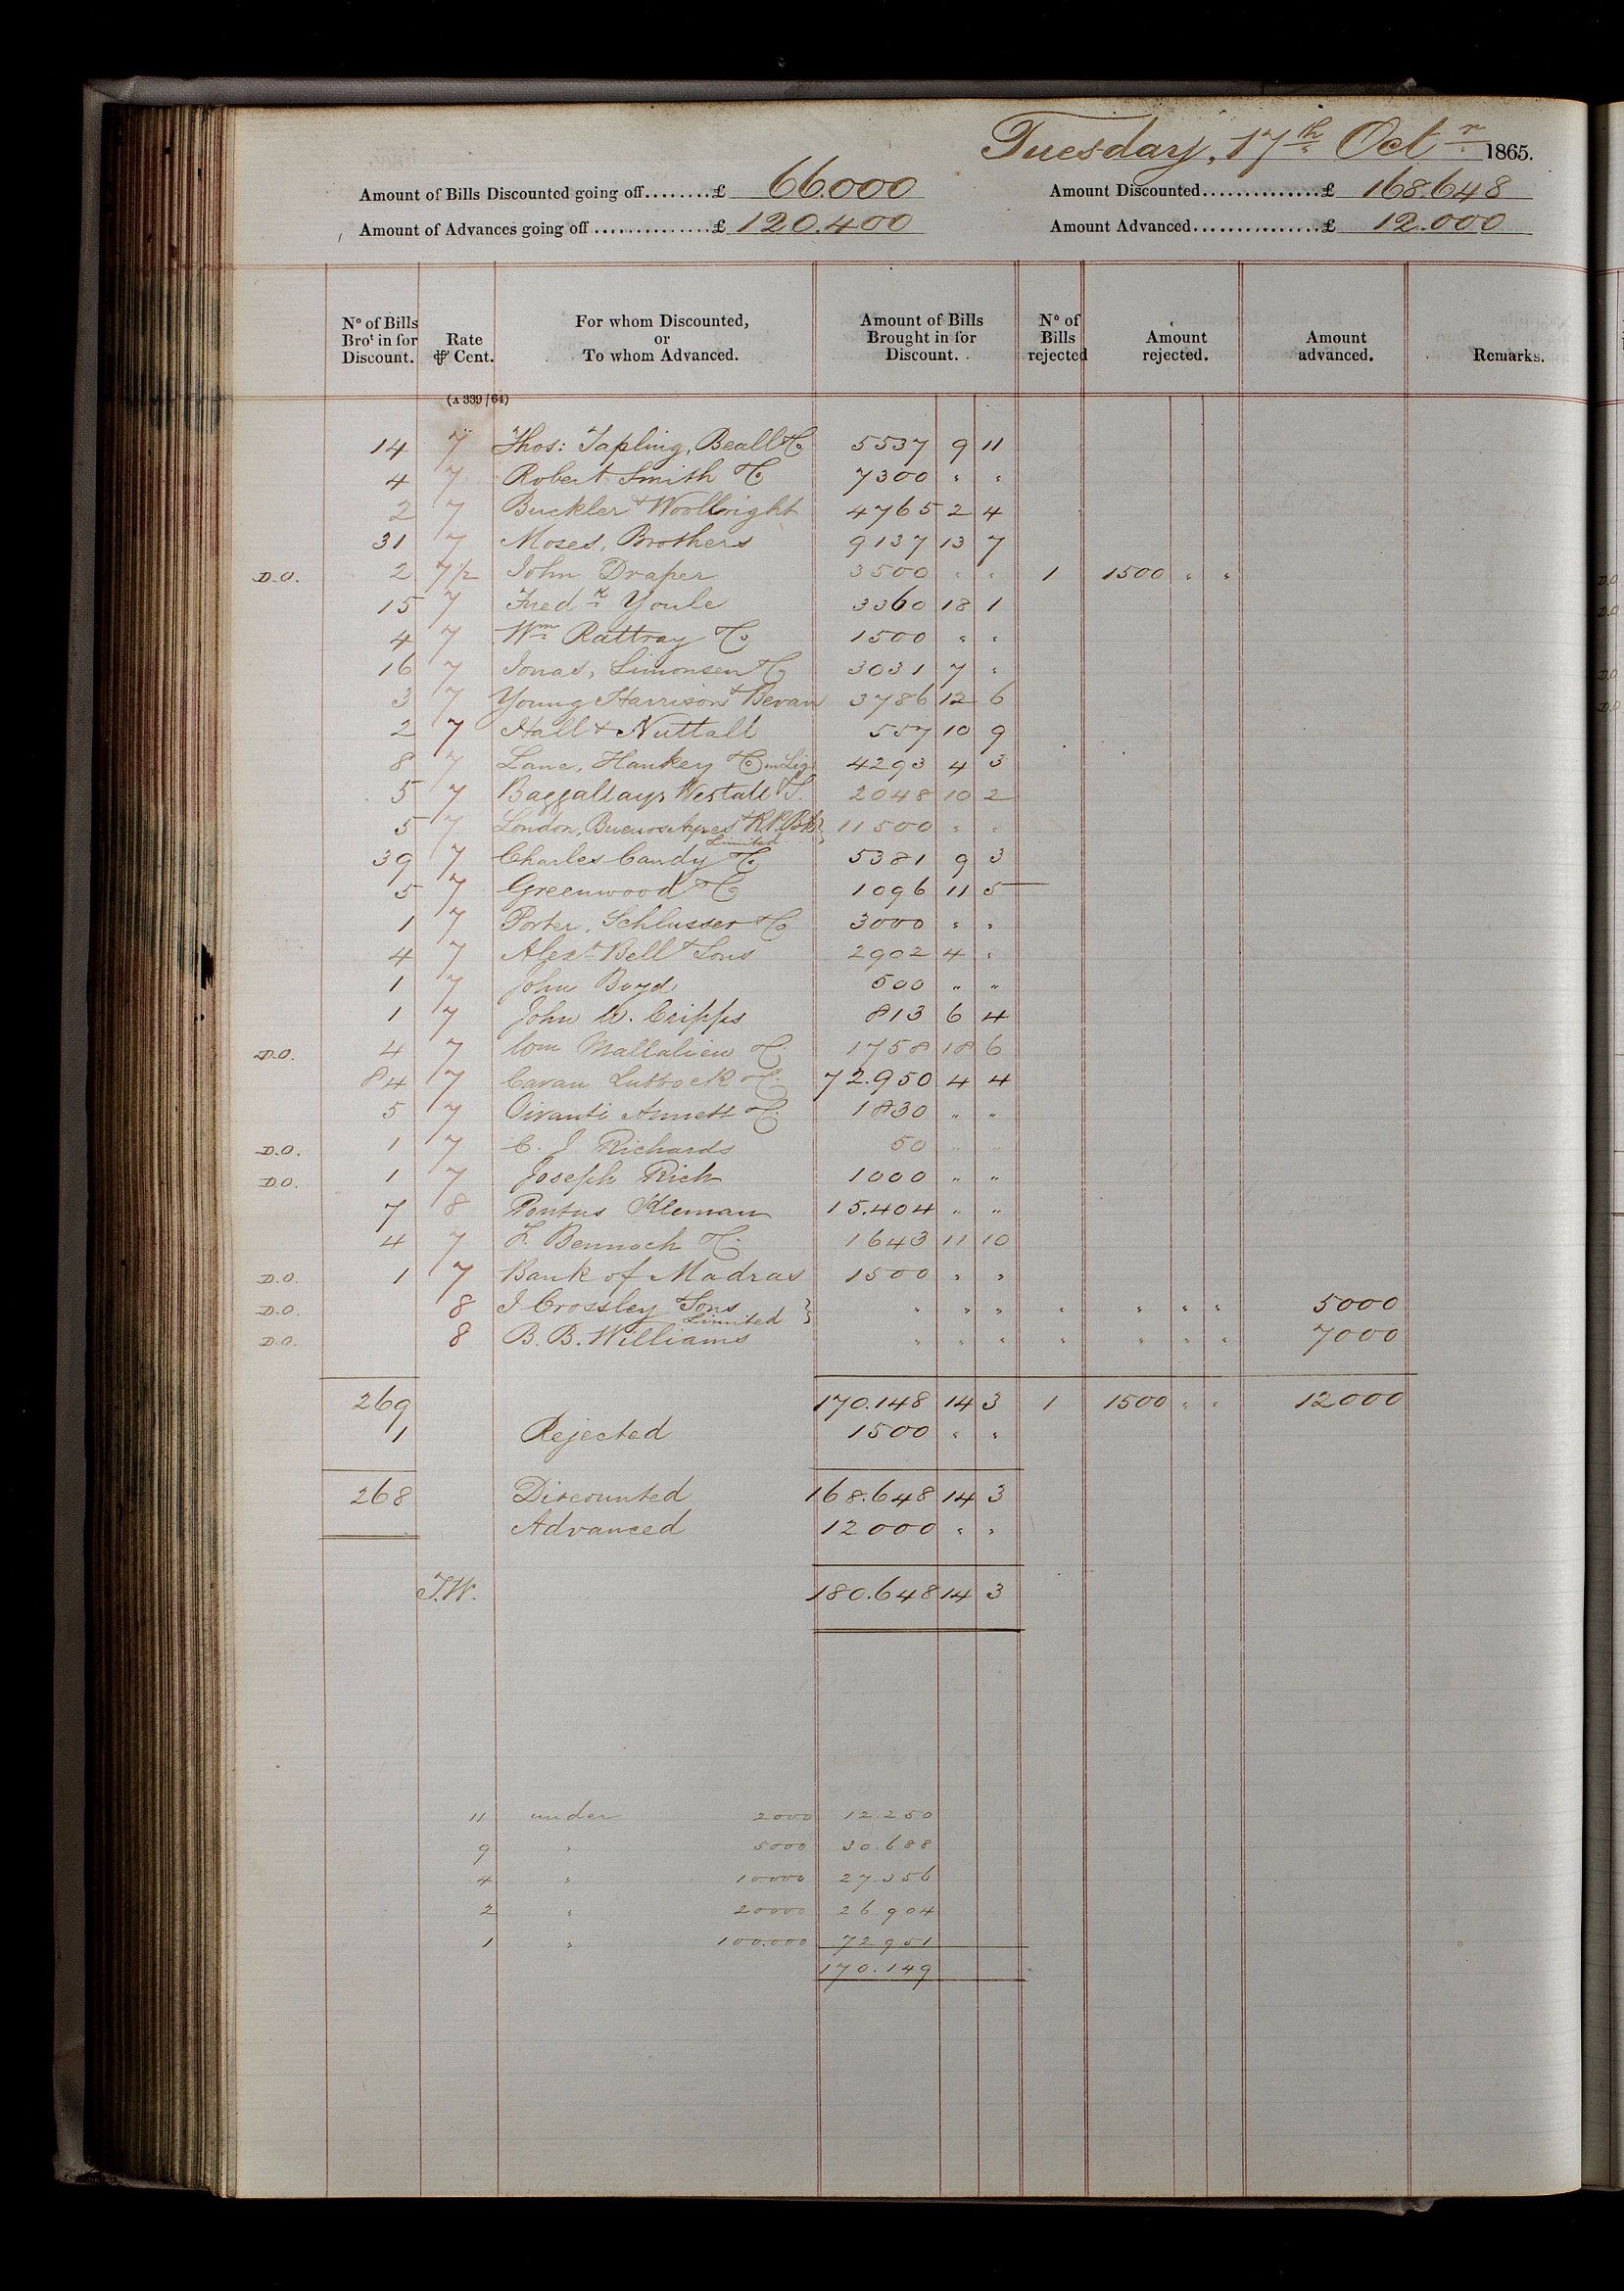 Tuesday, 17th Octr 1865.
Amount of Bills Discounted going off........£ 66.000 Amount Discounted..............£ 168.648
Amount of Advances going off...............£ 120.400 Amount Advanced................£ 12.000
No of Bills Brot in for Discount. Rate ⅌ Cent. For whom Discounted, or To whom Advanced. Amount of Bills Brought in for Discount. No of Bills rejected Amount rejected. Amount advanced. Remarks.
(A 339/64)
14 7 Thos: Tapling, Beall & Co 5537 9 11
4 7 Robert Smith & Co 7300 " "
2 7 Buckler & Woollright 4765 2 4
31 7 Moses, Brothers 9137 13 7
D.O. 2 7½ John Draper 3500 " " 1 1500 " "
15 7 Fredk Youle 3360 18 1
4 7 Wm Rattray & Co 1500 " "
16 7 Jonas, Simonsen & Co 3031 7 "
3 7 Young Harrison & Bevan 3786 12 6
2 7 Hall & Nuttall 557 10 9
8 7 Lane, Hankey & Co in Liq 4293 4 3
5 7 Baggallays Westall & S. 2048 10 2
5 7 London, Buenos Ayres & R.P. Bk Limited } 11500 " "
39 7 Charles Candy & Co 5381 9 3
5 7 Greenwood & Co 1096 11 5
1 7 Porter, Schlusser & Co 3000 " "
4 7 Alexr Bell & Sons 2902 4 "
1 7 John Boyd 500 " "
1 7 John W. Cripps 813 6 4
D.O. 4 7 Wm Mallalieu & Co 1758 18 6
84 7 Cavan Lubbock & Co 72.950 4 4
5 7 Vivanti Annett & Co 1830 " "
D.O. 1 7 C. J. Richards 50 " "
D.O. 1 7 Joseph Rich 1000 " "
7 8 Pontus Kleman 15.404 " "
4 7 F. Bennoch & Co 1643 11 10
D.O. 1 7 Bank of Madras 1500 " "
D.O. 8 J Crossley & Sons Limited } " " " " " " " 5000
D.O. 8 B. B. Williams " " " " " " " 7000
269 170.148 14 3 1 1500 " " 12000
1 Rejected 1500 " "
268 Discounted 168.648 14 3
Advanced 12000 " "
T.W. 180.648 14 3
11 under 2000 12.250
9 " 5000 30.688
4 " 10000 27.356
2 " 20000 26.904
1 " 100.000 72951
170.149